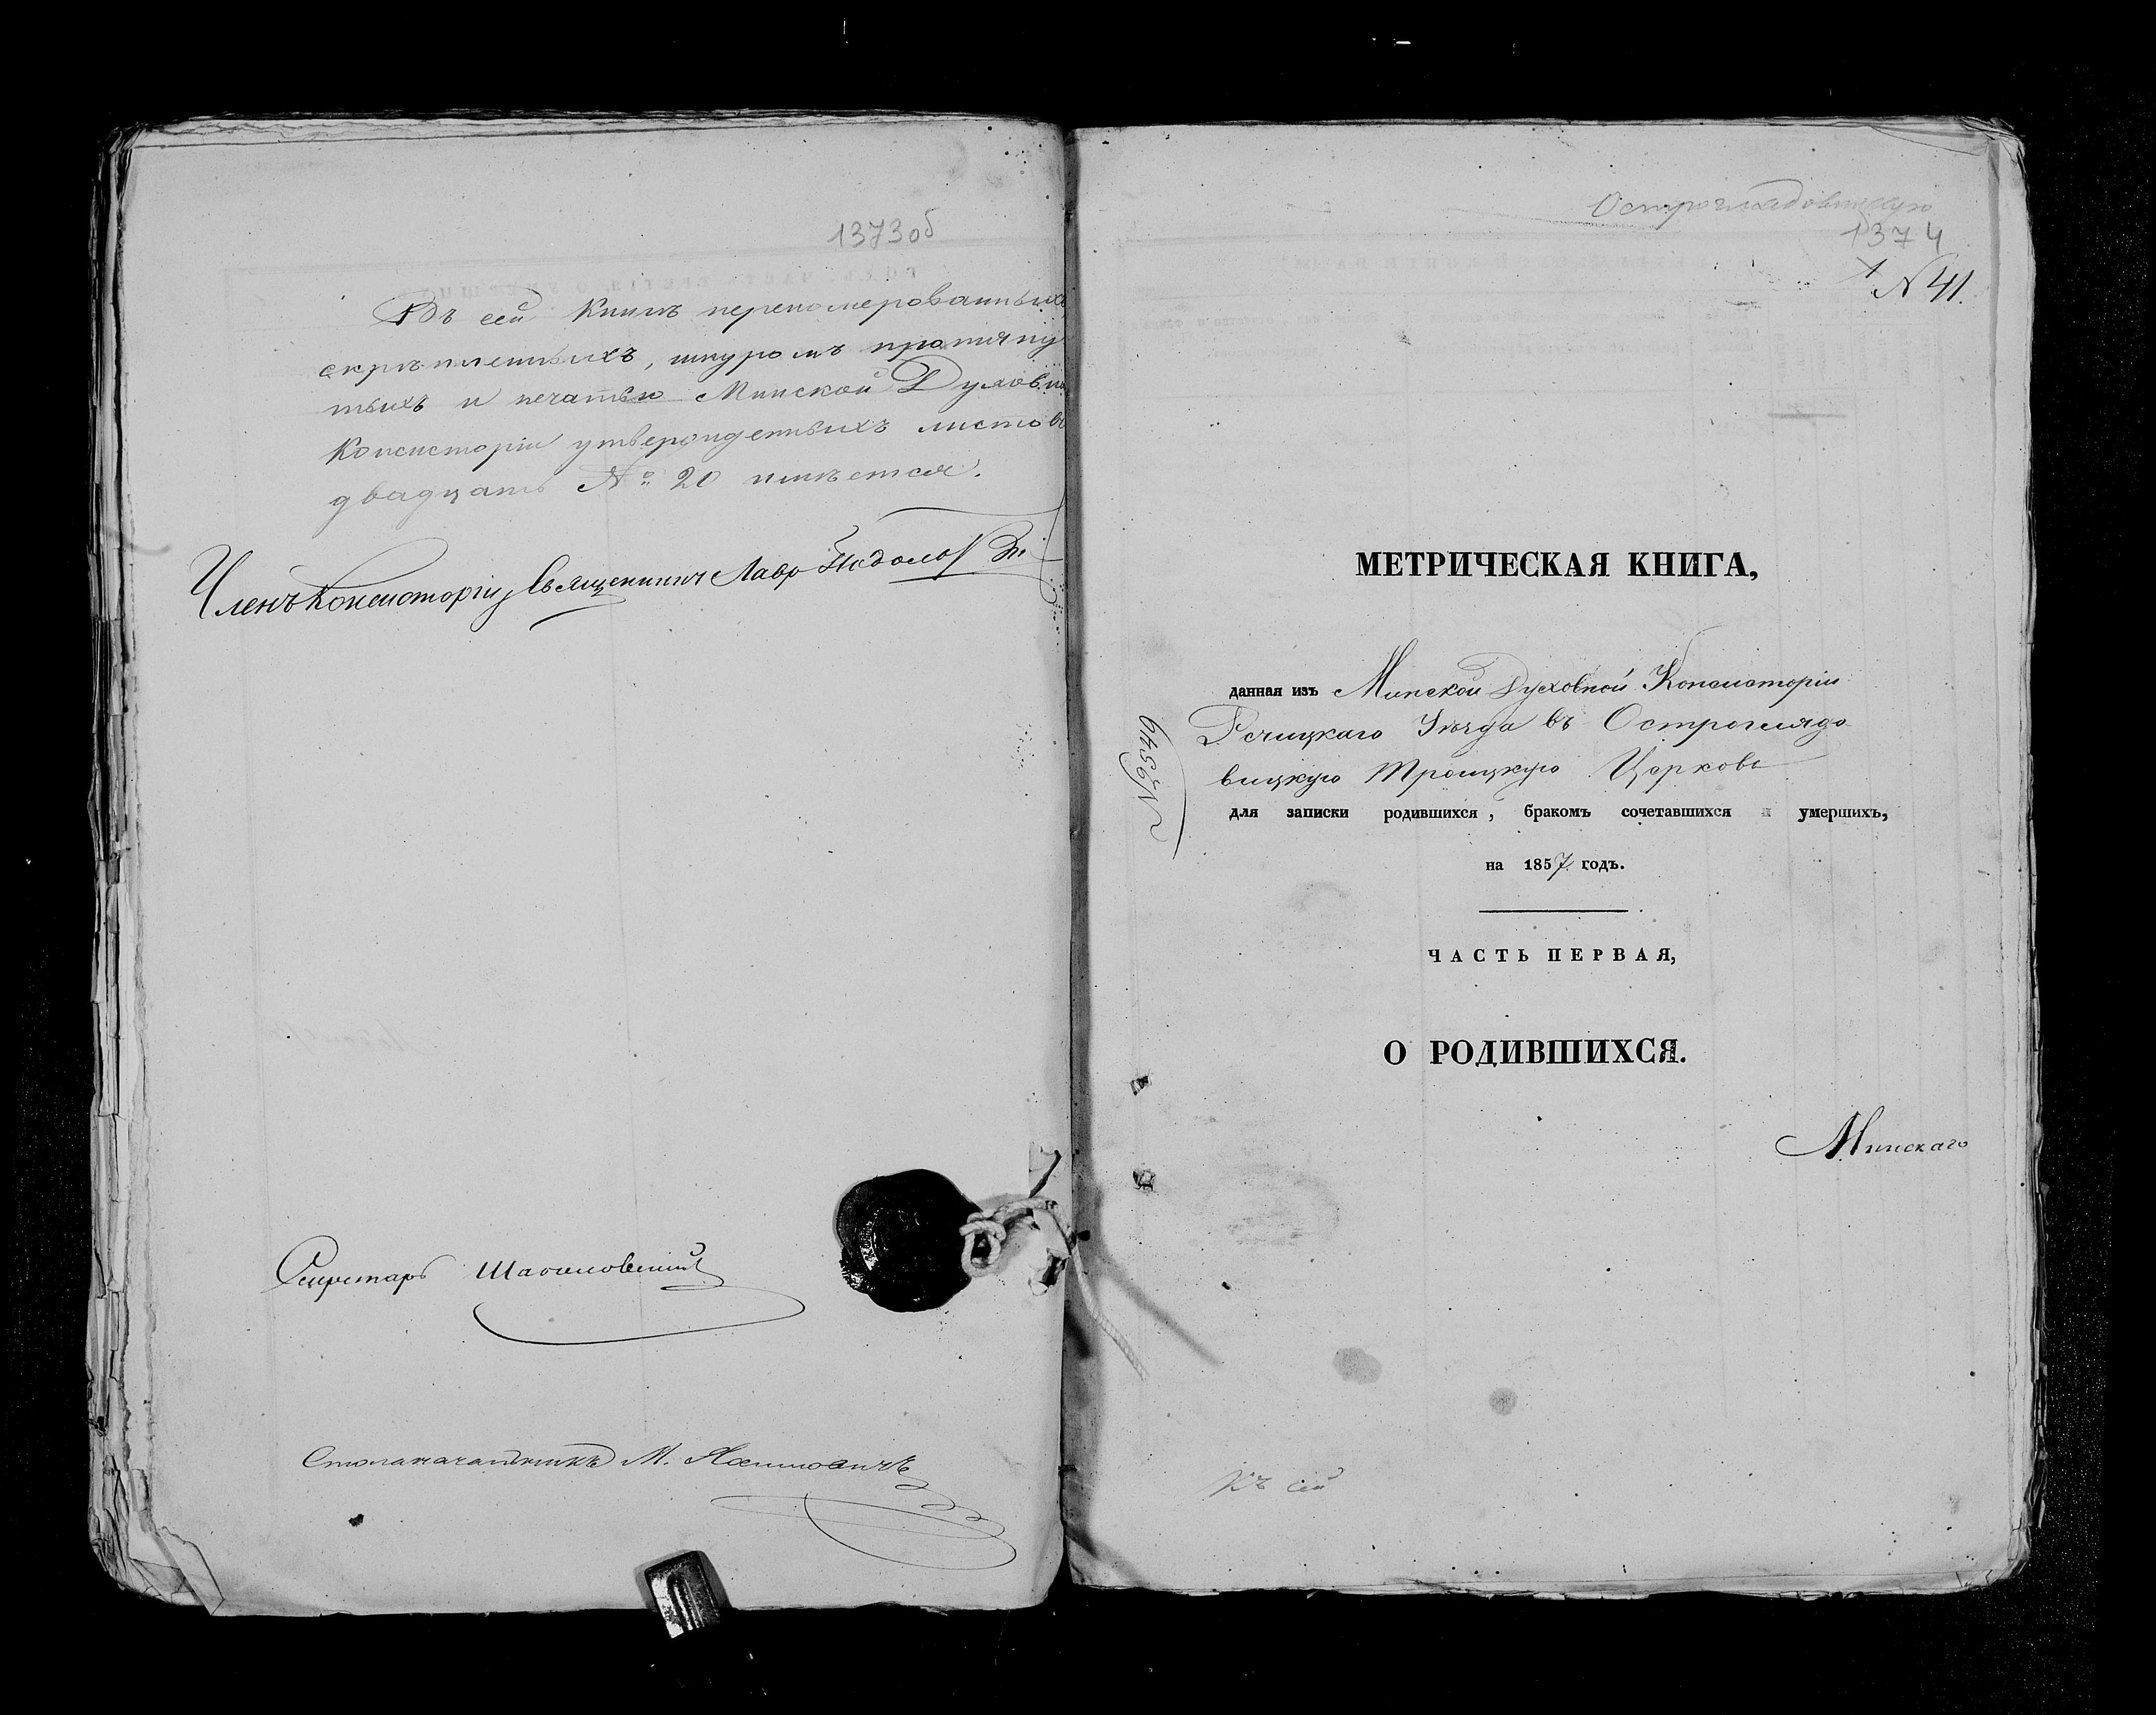 1373об
Въ сей Книгѣ переномерованныхъ
скрѣпленныхъ, шнуромъ протяну
тыхъ и печатью Минской Духовно
Консисторіи утвержденныхъ листовъ
двадцать № 20 имѣется.
Членъ Консисторіи, Священникъ
Секретарь
Столоначальникъ М.
Острогладовицкую
1374
1
N 41.
МЕТРИЧЕСКАЯ КНИГА,
данная изъ Минской Духовной Консисторіи
Речицкаго Уѣзда въ Остроглядо
вицкую Троицкую Церковь
для записки родившихся, бракомъ сочетавшихся и умершихъ,
на 1857 годъ.
ЧАСТЬ ПЕРВАЯ,
О РОДИВШИХСЯ.
Минскаго
Къ сей